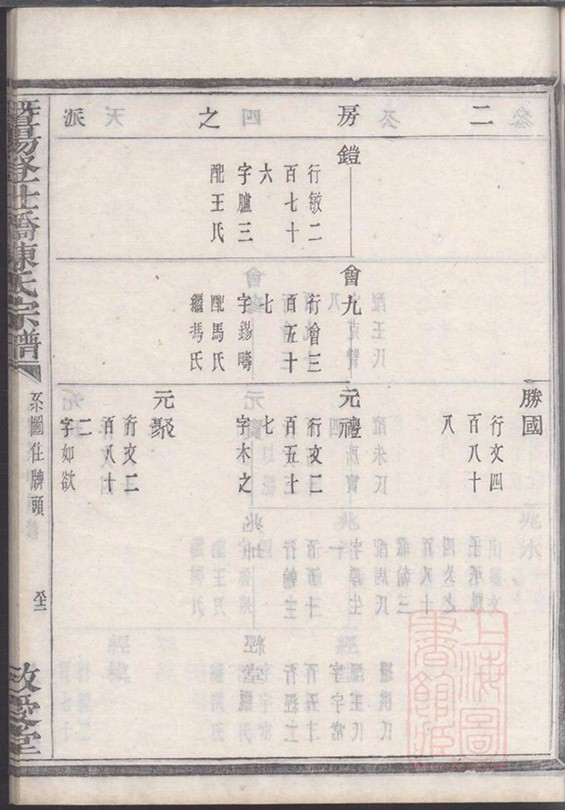 二房之派
鎧
行敏二
百七十
六
字臚三
配王氏
會九
行會三
百五十
七
字錫疇
配馬氏
繼馮氏
勝國
行文四
百八十
八
元禮
行文二
百五十
七
字木之
元聚
行文二
百八十
二
字如欲
暨陽登仕橋陳氏宗譜
系圖仕牌頭
敬愛堂
上海圖書館藏